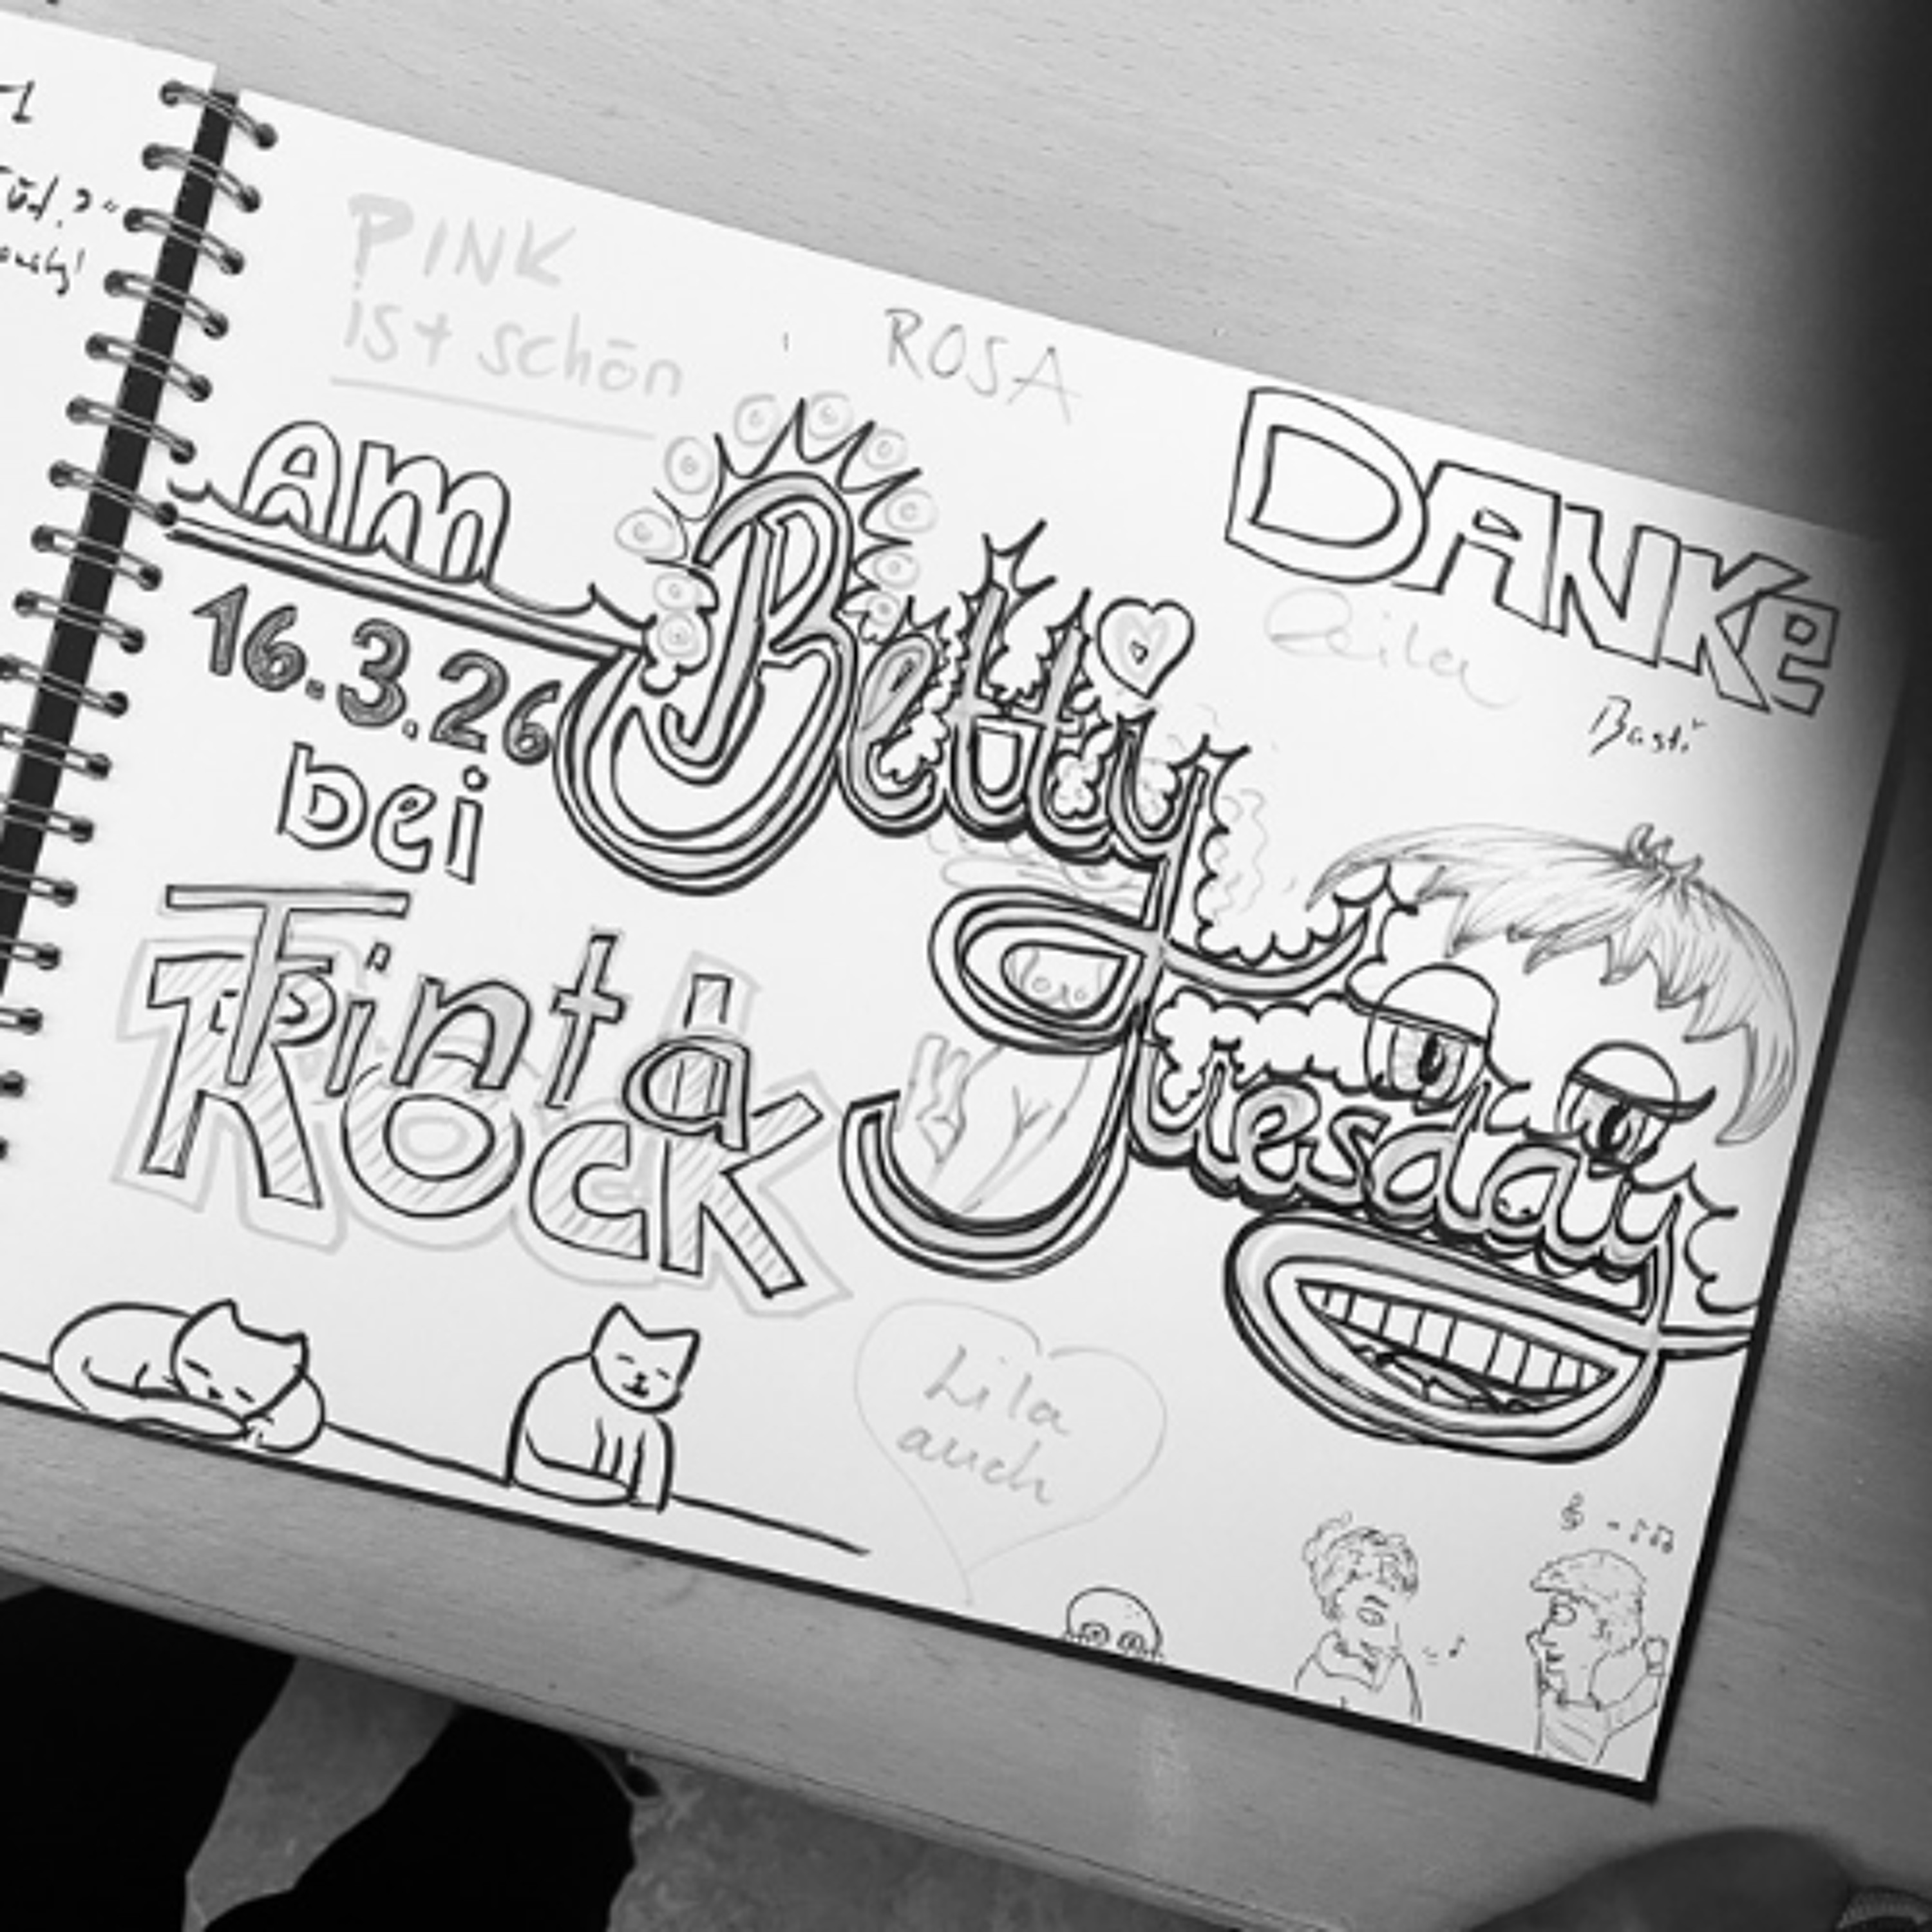 PINK
ist schön
ROSA
DANKE
Leila
Basti
am
16.3.26
bei
Tinta
ROCK
Betty
Tuesday
Lila
auch